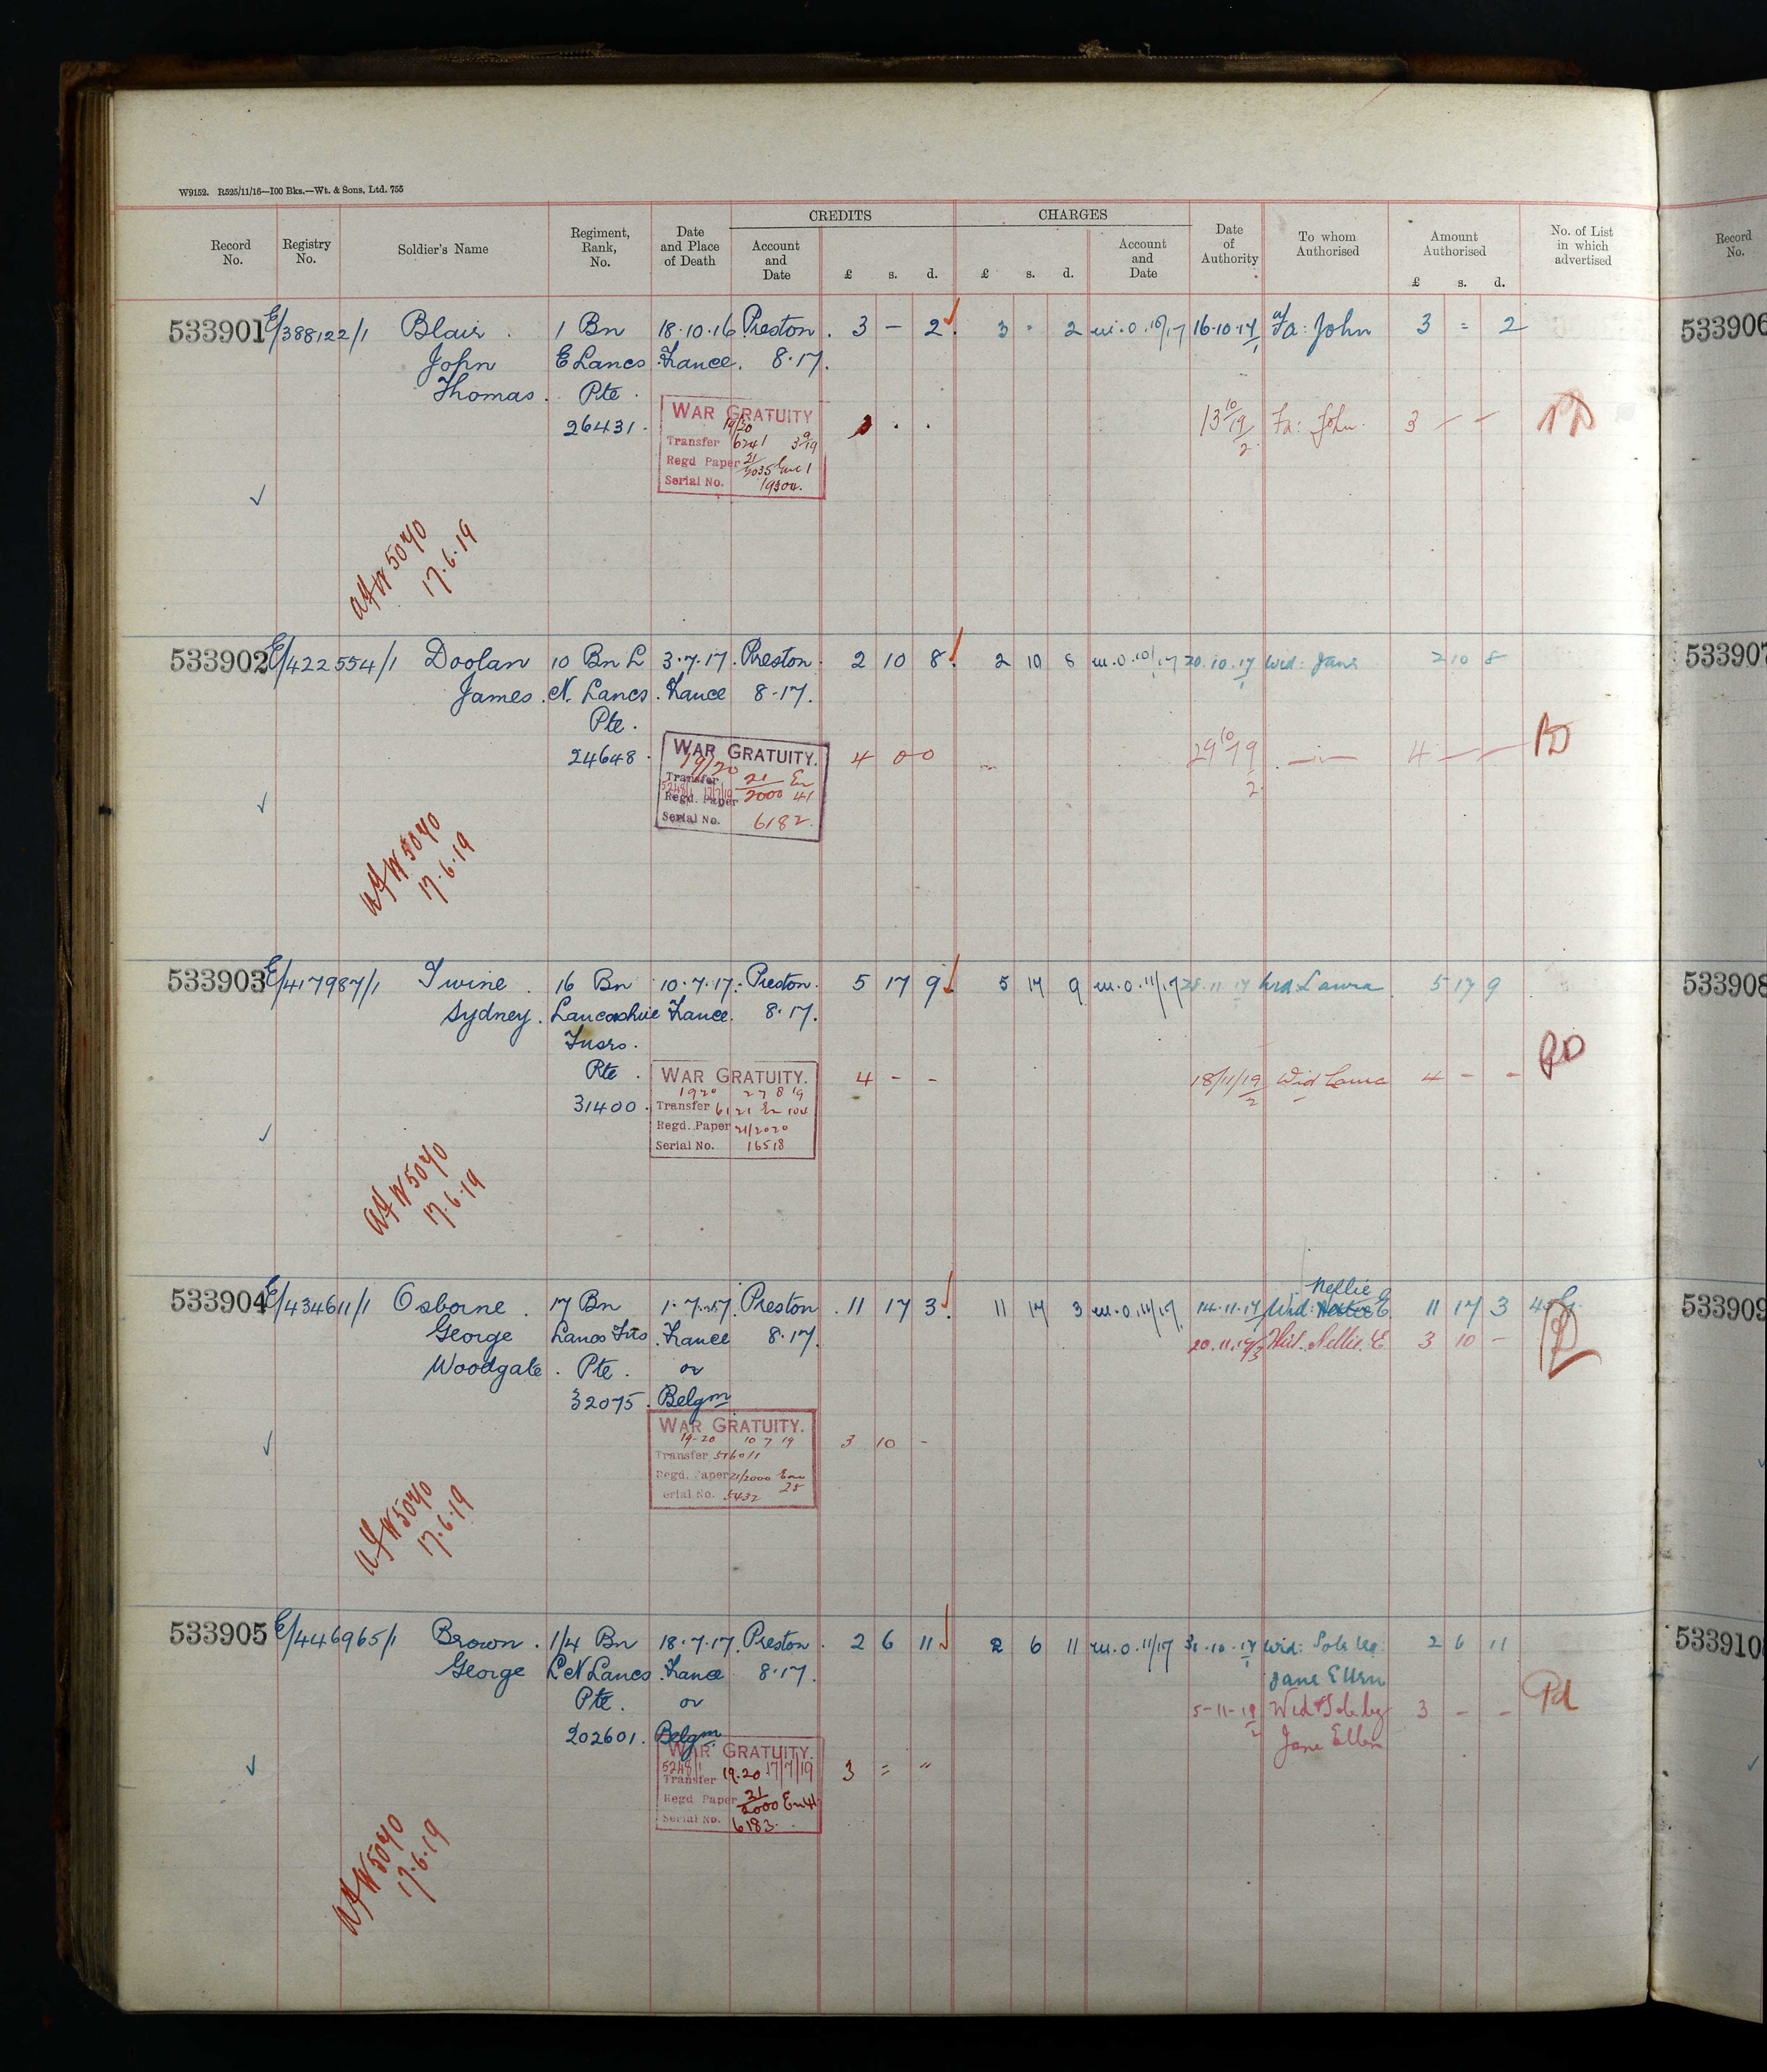 W9152. R525/11/16—100 Bks.—Wt. & Sons, Ltd. 755
CREDITS CHARGES
Record No. Registry No. Soldier's Name Regiment, Rank, No. Date and Place of Death Account and Date £ s. d. £ s. d. Account and Date Date of Authority To whom Authorised Amount Authorised £ s. d. No. of List in which advertised Record No.
533901 E/388122/1 Blair. 1 Bn 18.10.16 Preston. 3 - 2. 3 - 2 m.o. 10/17 16.10.17 Fa: John 3 = 2 533906
John E Lancs France. 8.17.
Thomas. Pte.
26431. WAR GRATUITY 3 . . 13 10/19 2 Fa: John. 3 - -
19/20
Transfer 6241 3 9/19
Regd Paper 21/2035 Enc 1
Serial No. 19304.
Af W 5070
17.6.19
533902 E/422554/1 Doolan 10 Bn L 3.7.17. Preston. 2 10 8. 2 10 8 m.o. 10/17 20.10.17 Wid: Jane 2 10 8 533907
James. N. Lancs. France 8.17.
Pte.
24648. WAR GRATUITY. 4 0 0 29 10/19 2 4 - - PD
19/20
Transfer 5248/1 17/7/19
Regd. Paper 21/2000 En 41
Serial No. 6182.
Af W 5070
17.6.19
533903 E/417987/1 Irvine. 16 Bn 10.7.17. Preston. 5 17 9. 5 17 9 m.o. 11/17 11 17 Wid Laura 5 17 9 533908
Sydney. Lancashire France. 8.17.
Fusrs.
Pte. WAR GRATUITY. 4 - - 18/11/19 2 Wid Laura 4 - - PD
31400. 1920 27 8 19
Transfer 6121 En 104
Regd. Paper 21/2020
Serial No. 16518
Af W 5070
17.6.19
Nellie G
533904 E/434611/1 Osborne. 17 Bn 1.7.17. Preston. 11 17 3. 11 17 3 m.o. 11/17. 14.11.17 Wid: E. 11 17 3 533909
George Lancs Fus. France 8.17. 20.11.19 3 Wid. Nellie. E 3 10 -
Woodgate. Pte. or
32075. Belgm
WAR GRATUITY. 3 10 -
19-20 10 7 19
Transfer 5160/1
Regd. Paper 21/2000 Enc 25
Serial No. 5432
Af W 5070
17.6.19
533905 E/446965/1 Brown. 1/4 Bn 18.7.17. Preston. 2 6 11 2 6 11 m.o. 11/17 31.10.17 Wid: Sole Leg: 2 6 11 533910
George L N Lancs. France 8.17. Jane Ellen
Pte. or 5-11-19 2 Wid & Sole leg 3 - - Pd
202601. Belgm Jane Ellen
WAR GRATUITY. 3 = "
5248/1 19.20 17/7/19
Transfer
Regd Paper 21/2000 En 41
Serial No. 6183.
Af W 5070
17.6.19